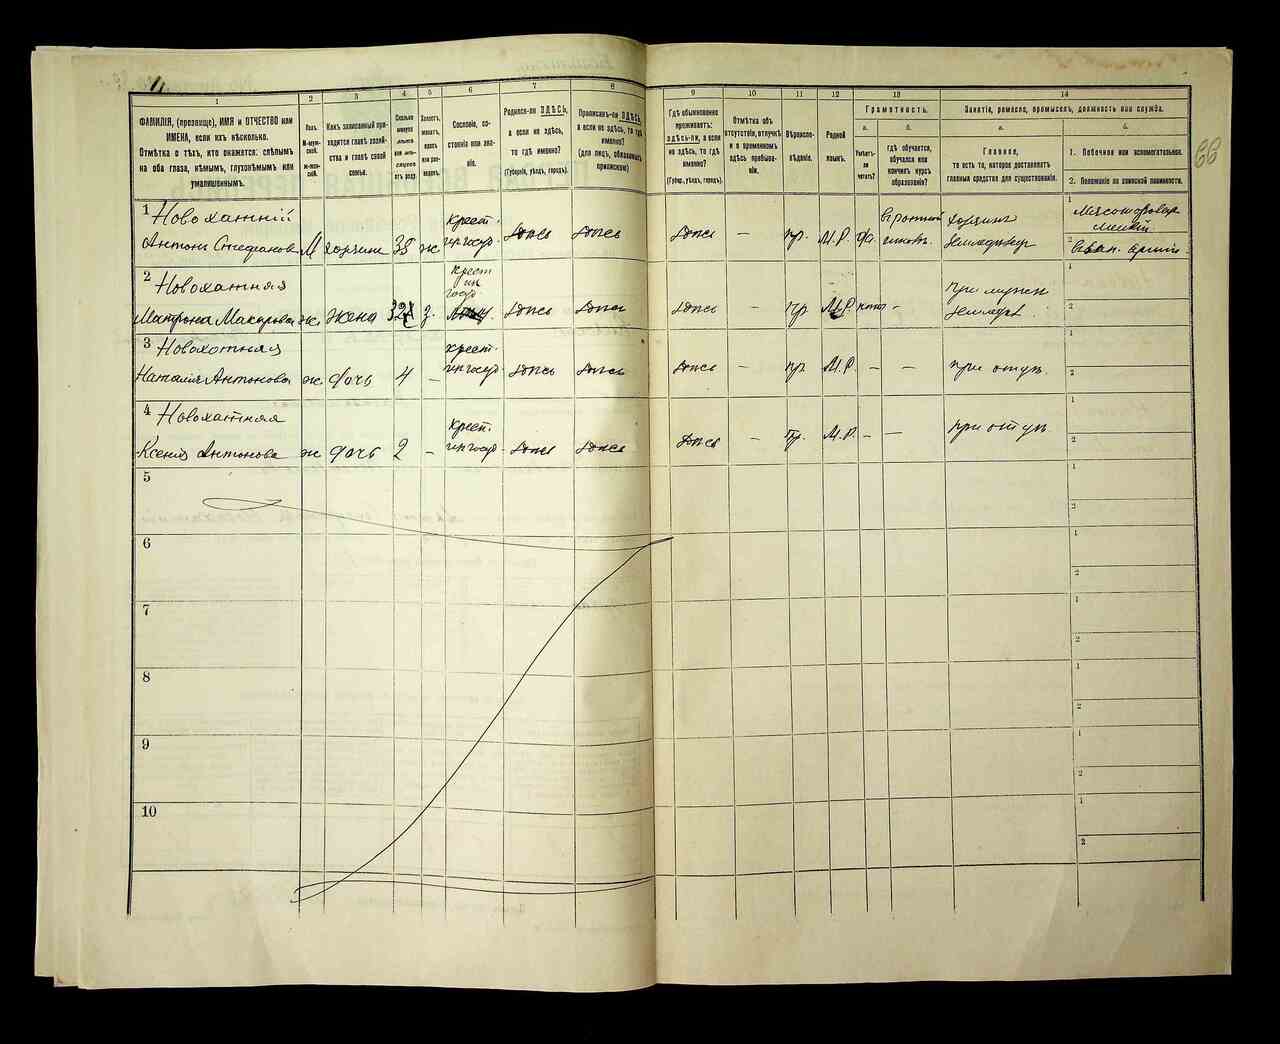 1
2
3
4
5
6
7
8
9
10
11
12
13
14
ФАМИЛІЯ, (прозвище), ИМЯ и ОТЧЕСТВО или
ИМЕНА, если ихъ нѣсколько.
Отмѣтка о тѣхъ, кто окажется: слѣпымъ
на оба глаза, нѣмымъ, глухонѣмымъ или
умалишеннымъ.
Полъ.
М-муж-
ской.
Ж-жен-
скій.
Какъ записанный при-
ходится главѣ хозяй-
ства и главѣ своей
семьи.
Сколько
минуло
лѣтъ
или мѣс-
яцевъ
отъ роду.
Холостъ,
женатъ,
вдовъ
или раз-
веденъ.
Сословіе, со-
стояніе или зва-
ніе.
Родился-ли ЗДѢСЬ,
а если не здѣсь,
то гдѣ именно?
(Губернія, уѣздъ, городъ).
Приписанъ-ли ЗДѢСЬ,
а если не здѣсь, то гдѣ
именно?
(для лицъ, обязанныхъ
припискою)
Гдѣ обыкновенно
проживаетъ:
ЗДѢСЬ-ЛИ, а если
не здѣсь, то гдѣ
именно?
(Губер., уѣздъ, городъ).
Отмѣтка объ
отсутствіи, отлучкѣ
и о временномъ
здѣсь пребыва-
ніи.
Вѣроиспо-
вѣданіе.
Родной
языкъ.
Грамотность.
а.
б.
Умѣетъ-
ли
читать?
Гдѣ обучается,
обучался или
кончилъ курсъ
образованія?
Занятія, ремесло, промыселъ, должность или служба.
а.
б.
Главное,
то есть то, которое доставляетъ
главныя средства для существованія.
1. Побочное или вспомогательное.
2. Положеніе по воинской повинности.
66
1 Новохатній
Антонъ Стефановъ М хозяинъ 38 ж крест. изъ госуд. здѣсь здѣсь здѣсь — пр. М.Р. да хозяинъ земледѣлецъ
2 Новохатняя
Матрона Макарова ж. жена 32 з. крест. изъ госуд. здѣсь здѣсь здѣсь — пр. М.Р. нѣтъ — при мужѣ земледѣл.
3 Новохотняя
Наталія Антонова ж дочь 4 — крест. изъ госуд. здѣсь здѣсь здѣсь — пр М.Р. — — при отцѣ.
4 Новохатняя
Ксенія Антонова ж дочь 2 — крест. изъ госуд. здѣсь здѣсь здѣсь — пр. М.Р. — — при отцѣ
5
6
7
8
9
10